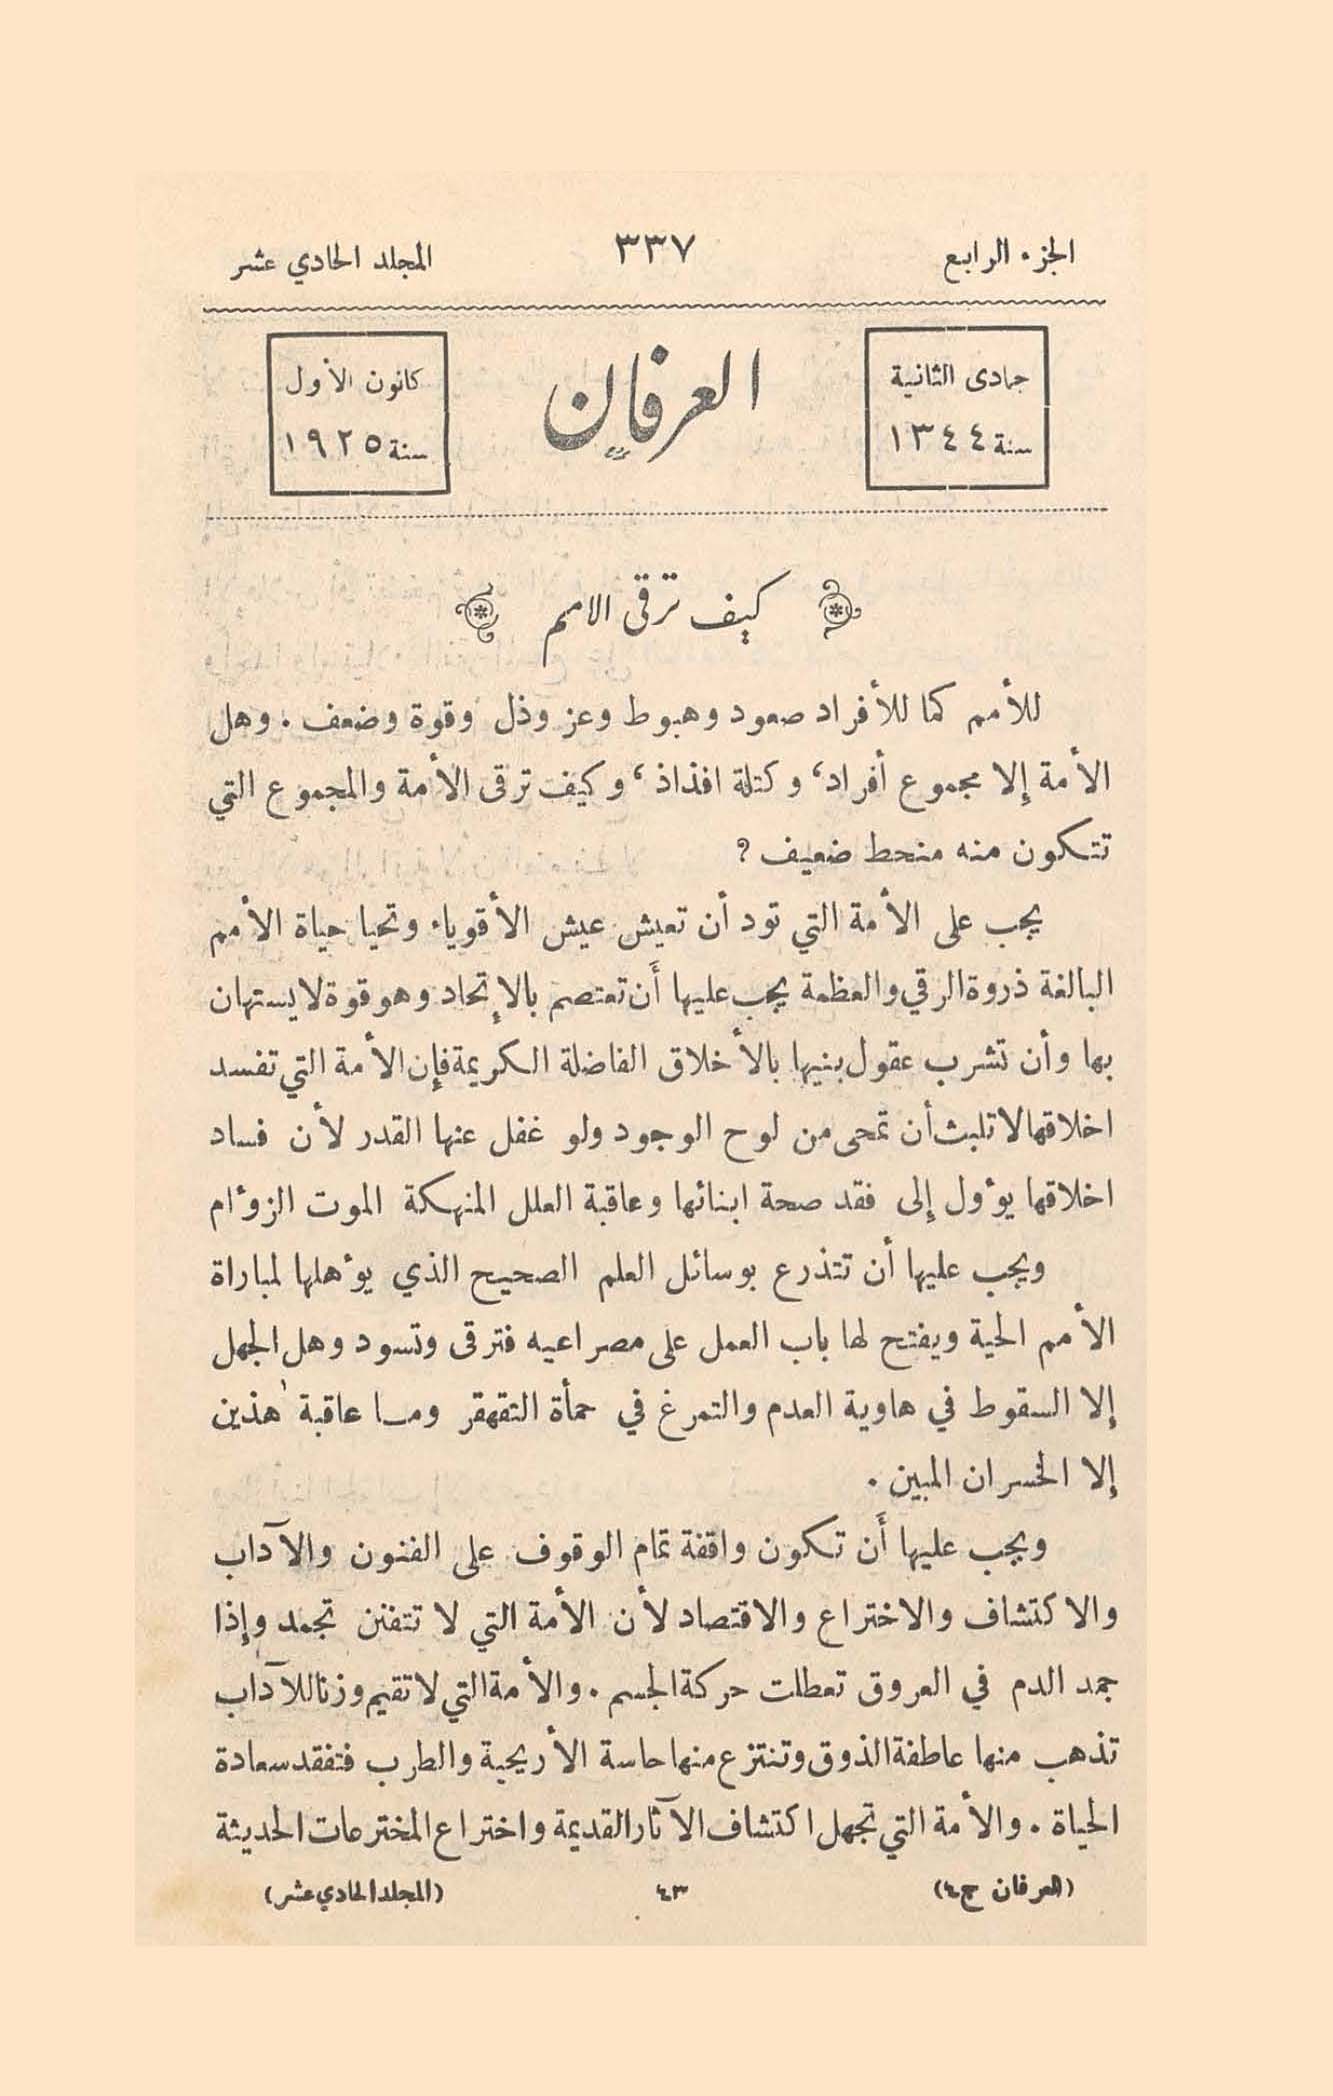 الجزء الرابع ٣٣٧ المجلد الحادي عشر
جمادى الثانية
سنة ١٣٤٤
العرفان
كانون الأول
سنة ١٩٢٥
كيف ترقى الامم
للأمم كما للأفراد صعود وهبوط وعز وذل وقوة وضعف . وهل
الأمة إلا مجموع أفراد، وكتلة افذاذ، وكيف ترقى الأمة والمجموع التي
تتكون منه منحط ضعيف ؟
يجب على الأمة التي تود أن تعيش عيش الأقوياء وتحيا حياة الأمم
البالغة ذروة الرقي والعظمة يجب عليها أن تعتصم بالإتحاد وهو قوة لا يستهان
بها وأن تشرب عقول بنيها بالأخلاق الفاضلة الكريمة فإن الأمة التي تفسد
اخلاقها لا تلبث أن تمحى من لوح الوجود ولو غفل عنها القدر لأن فساد
اخلاقها يؤول إلى فقد صحة ابنائها وعاقبة العلل المنهكة الموت الزؤام
ويجب عليها أن تتذرع بوسائل العلم الصحيح الذي يؤهلها لمباراة
الأمم الحية ويفتح لها باب العمل على مصراعيه فترقى وتسود وهل الجهل
إلا السقوط في هاوية العدم والتمرغ في حمأة التقهقر ومـا عاقبة هذين
إلا الخسران المبين .
ويجب عليها أَن تكون واقفة تمام الوقوف على الفنون والآداب
والاكتشاف والاختراع والاقتصاد لأن الأمة التي لا تتفنن تجمد وإذا
جمد الدم في العروق تعطلت حركة الجسم . والأمة التي لا تقيم وزنا للآداب
تذهب منها عاطفة الذوق وتنتزع منها حاسة الأريحية والطرب فتفقد سعادة
الحياة . والأمة التي تجهل اكتشاف الآثار القديمة واختراع المخترعات الحديثة
(العرفان ج ٤) ٤٣ (المجلد الحادي عشر)